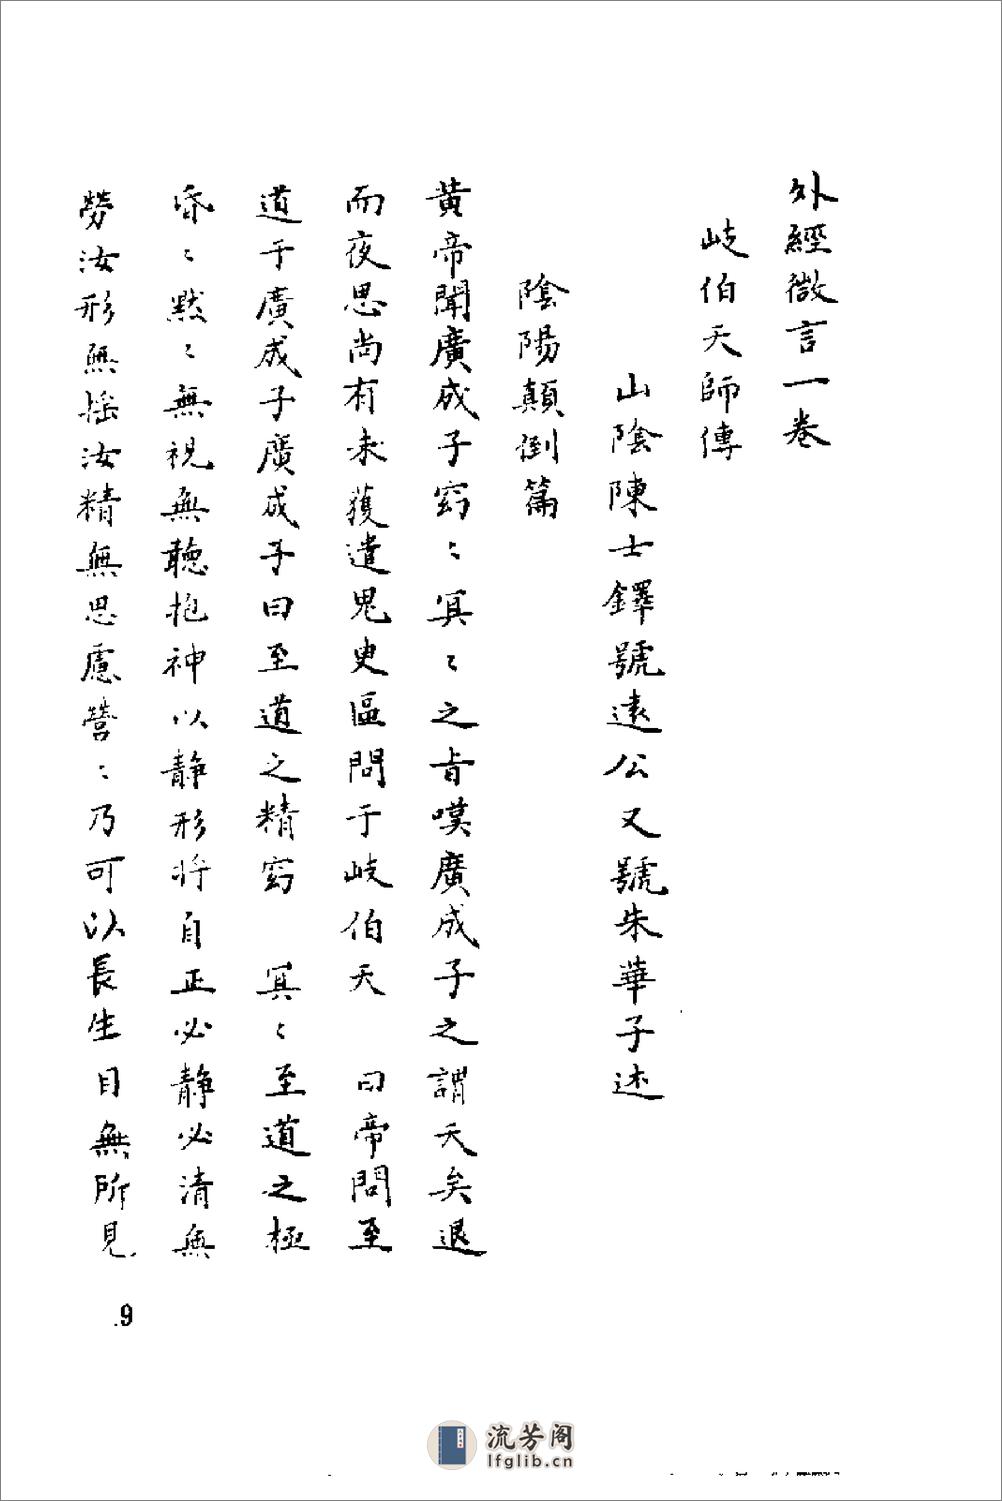 外經微言一卷
岐伯天師傳
山陰陳士鐸號遠公又號朱華子述
陰陽顛倒篇
黃帝聞廣成子窈〻冥〻之旨嘆廣成子之謂天矣退
而夜思尚有未獲遣鬼臾區問于岐伯天 曰帝問至
道于廣成子廣成子曰至道之精窈 冥〻至道之極
昏〻默〻無視無聽抱神以静形将自正必静必清無
勞汝形無摇汝精無思慮營〻乃可以長生目無所見
.9
流芳阁
lfglib.cn